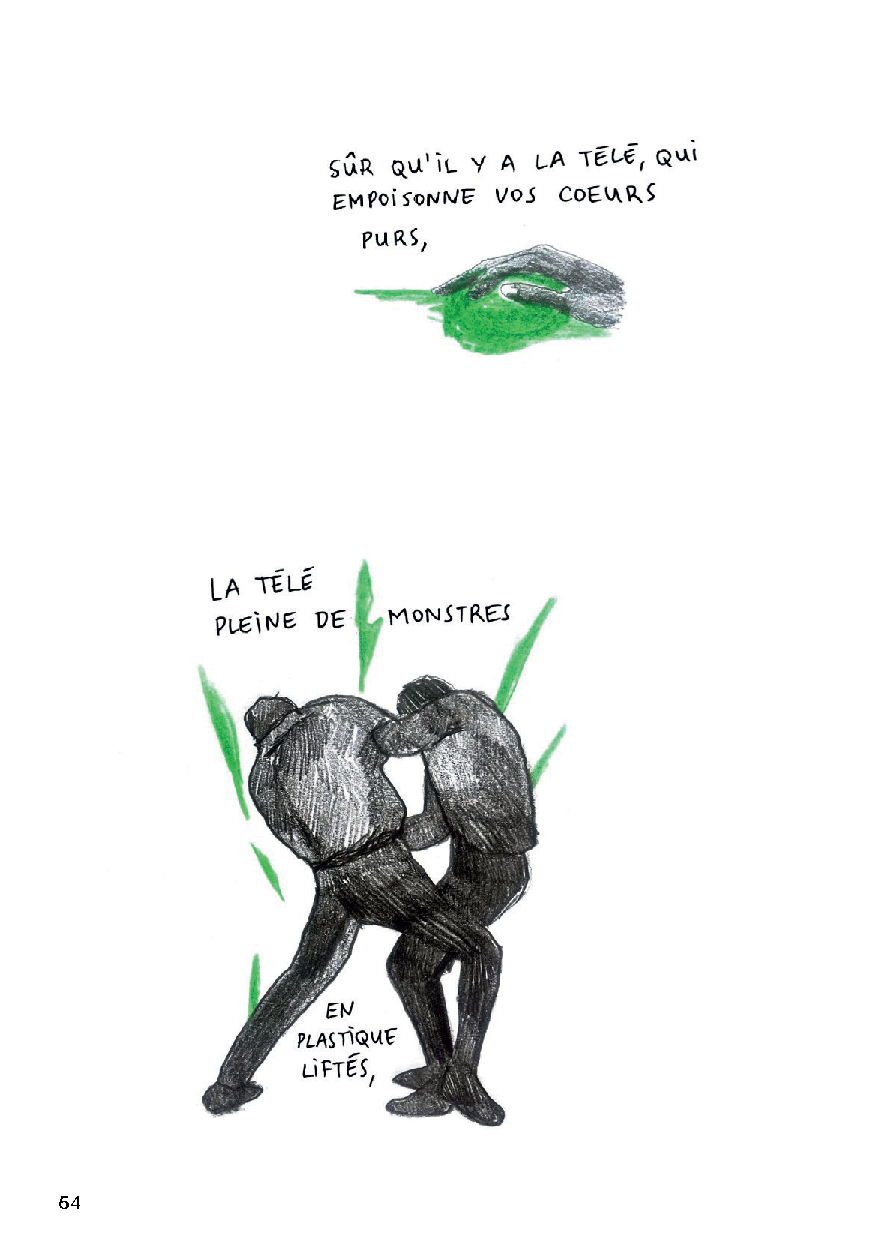 SÛR QU'IL Y A LA TÉLÉ, QUI
EMPOISONNE VOS COEURS
PURS,
LA TÉLÉ
PLEINE DE MONSTRES
EN
PLASTIQUE
LIFTÉS,
54